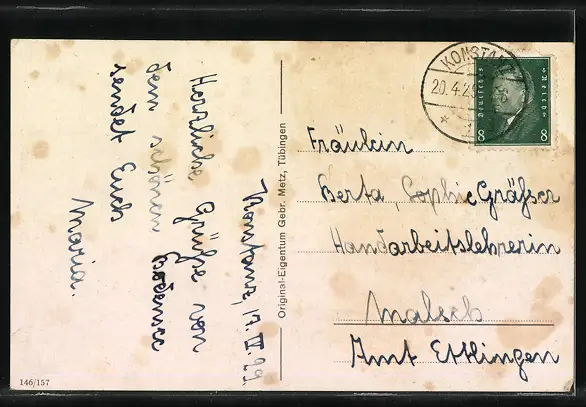 Konstanz, 17. IV. 29.
Herzliche Grüße von
dem schönen Bodensee
sendet Euch
Maria.
Original-Eigentum Gebr. Metz, Tübingen
KONSTAN
20.4.29
Deutsches Reich
8 8
Fräulein
Berta, Sophie Gräßer
Handarbeitslehrerin
Malsch
Amt Ettlingen
146/157